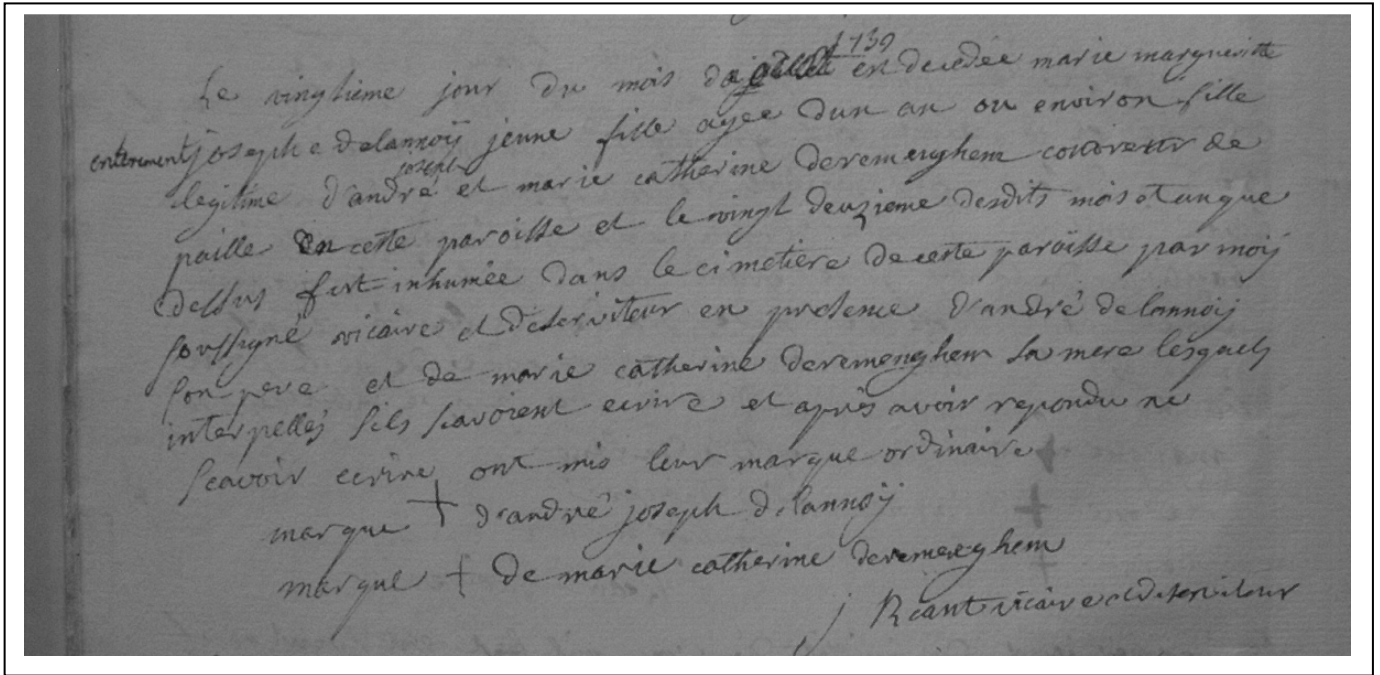 1739
Le vingtieme jour du mois est decedée marie margueritte
enterrement josephe delannoÿ jeune fille agee dun an ou environ fille
joseph
legitime d'andré et marie catherine deremenghem couvreur de
paille en cette paroisse et le vingt deuzieme desdits mois et an que
dessus fut inhumée dans le cimetiere de cette paroisse par moÿ
soussigné vicaire et deserviteur en presence d'andré delannoÿ
son pere et de marie catherine deremenghem sa mere lesquels
interpellés sils scavoient ecrire et après avoir repondu ne
scavoir ecrire ont mis leur marque ordinaire
marque + d'andré joseph delannoÿ
marque + de marie catherine deremenghem
vicaire et deserviteur